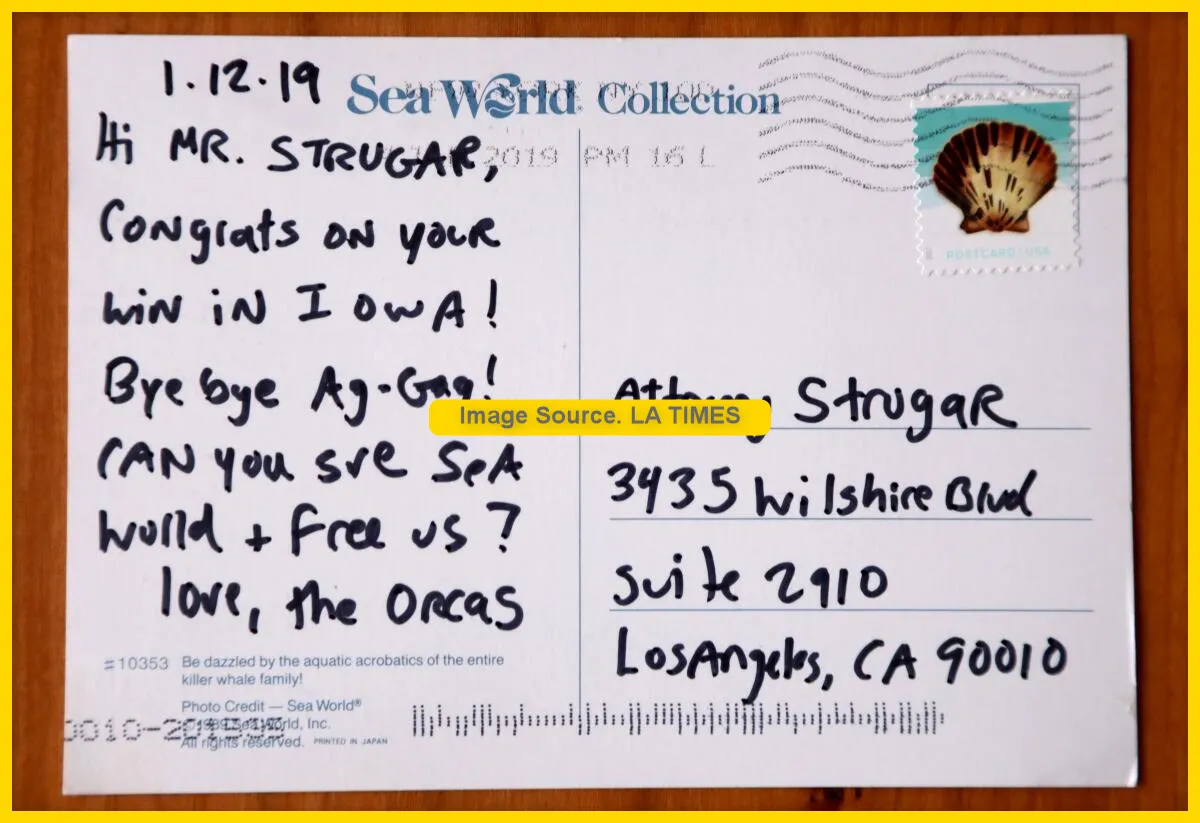 1.12.19
Sea World® Collection
Hi MR. STRUGAR,
2019 PM 16 L
Congrats ON your
win iN IowA!
Bye bye Ag-Gag!
CAN you sue SeA
World + free us?
love, the ORCAS
POSTCARD USA
Image Source. LA TIMES
Attorney StrugaR
3435 Wilshire Blvd
Suite 2910
Los Angeles, CA 90010
#10353 Be dazzled by the aquatic acrobatics of the entire
killer whale family!
Photo Credit — Sea World®
©1989 Sea World, Inc.
All rights reserved. PRINTED IN JAPAN